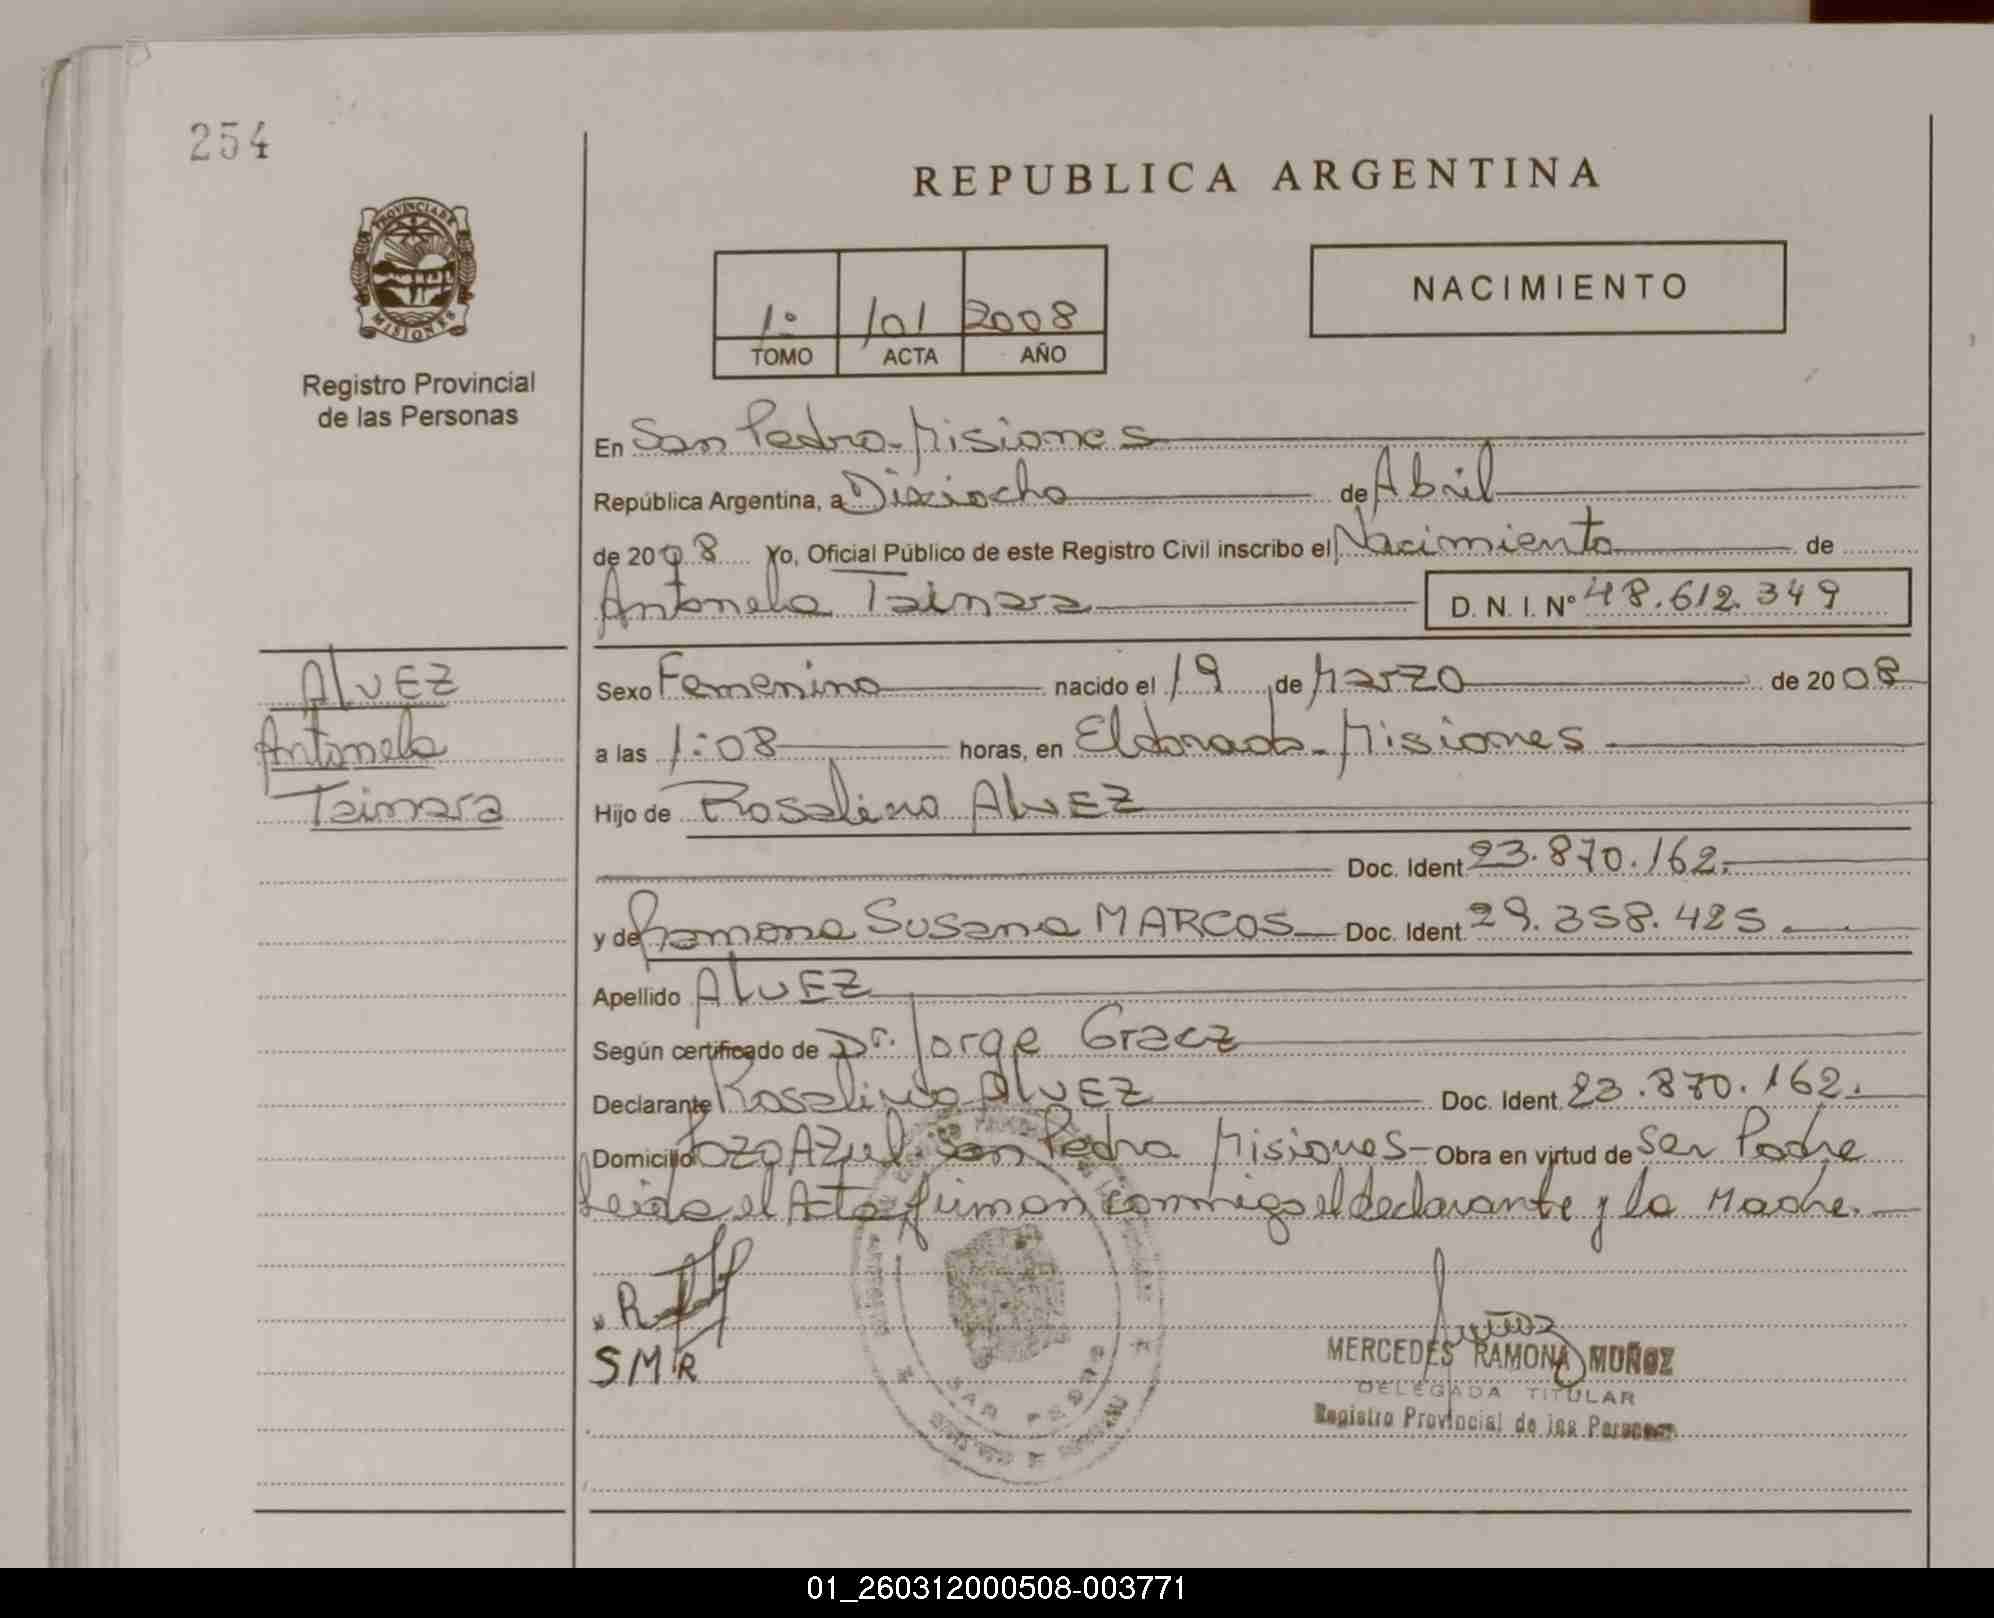 254
REPUBLICA ARGENTINA
PROVINCIA DE
MISIONES
NACIMIENTO
1º 101 2008
TOMO ACTA AÑO
Registro Provincial
de las Personas
En San Pedro-Misiones
República Argentina, a Dieciocho de Abril
de 2008 Yo, Oficial Público de este Registro Civil inscribo el Nacimiento de
Antonela Tainara D. N. I. Nº 48.612.349
Alvez
Antonela
Tainara
Sexo Femenino nacido el 19 de Marzo de 2008
a las 1:08 horas, en Eldorado-Misiones
Hijo de Rosalino AlvEZ
Doc. Ident. 23.870.162.
y de Ramona Susana MARCOS Doc. Ident. 29.358.425
Apellido AlvEZ
Según certificado de Dr. Jorge Gracz
Declarante Rosalino AlvEZ Doc. Ident. 23.870.162.
Domicilio Pozo Azul-San Pedro Misiones- Obra en virtud de ser Padre
Leida el Acta firman conmigo el declarante y la Madre.
R
SMR
SAN PEDRO
MERCEDES RAMONA MUÑOZ
DELEGADA TITULAR
Registro Provincial de las Personas
01_260312000508-003771